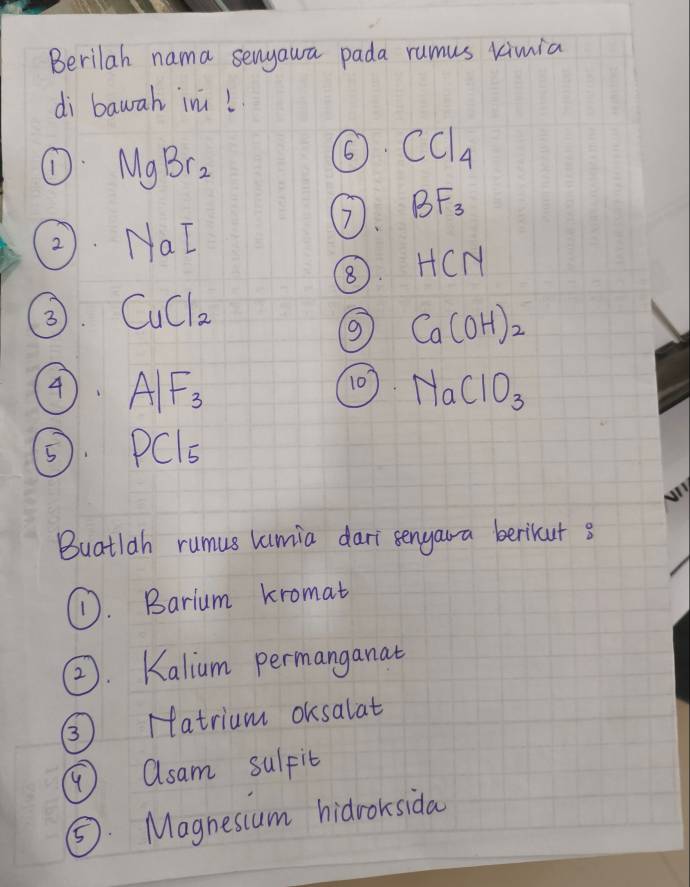 Berilah nama senyawa pada rumus kimia
di bawah ini !
① . MgBr₂
② . NaI
③ . CuCl₂
④ . AlF₃
⑤ . PCl₅
⑥ . CCl₄
⑦ . BF₃
⑧ . HCN
⑨ Ca(OH)₂
⑩ . NaClO₃
Buatlah rumus kimia dari senyawa berikut :
① . Barium kromat
② . Kalium permanganat
③ Natrium oksalat
④ asam sulfit
⑤ . Magnesium hidroksida